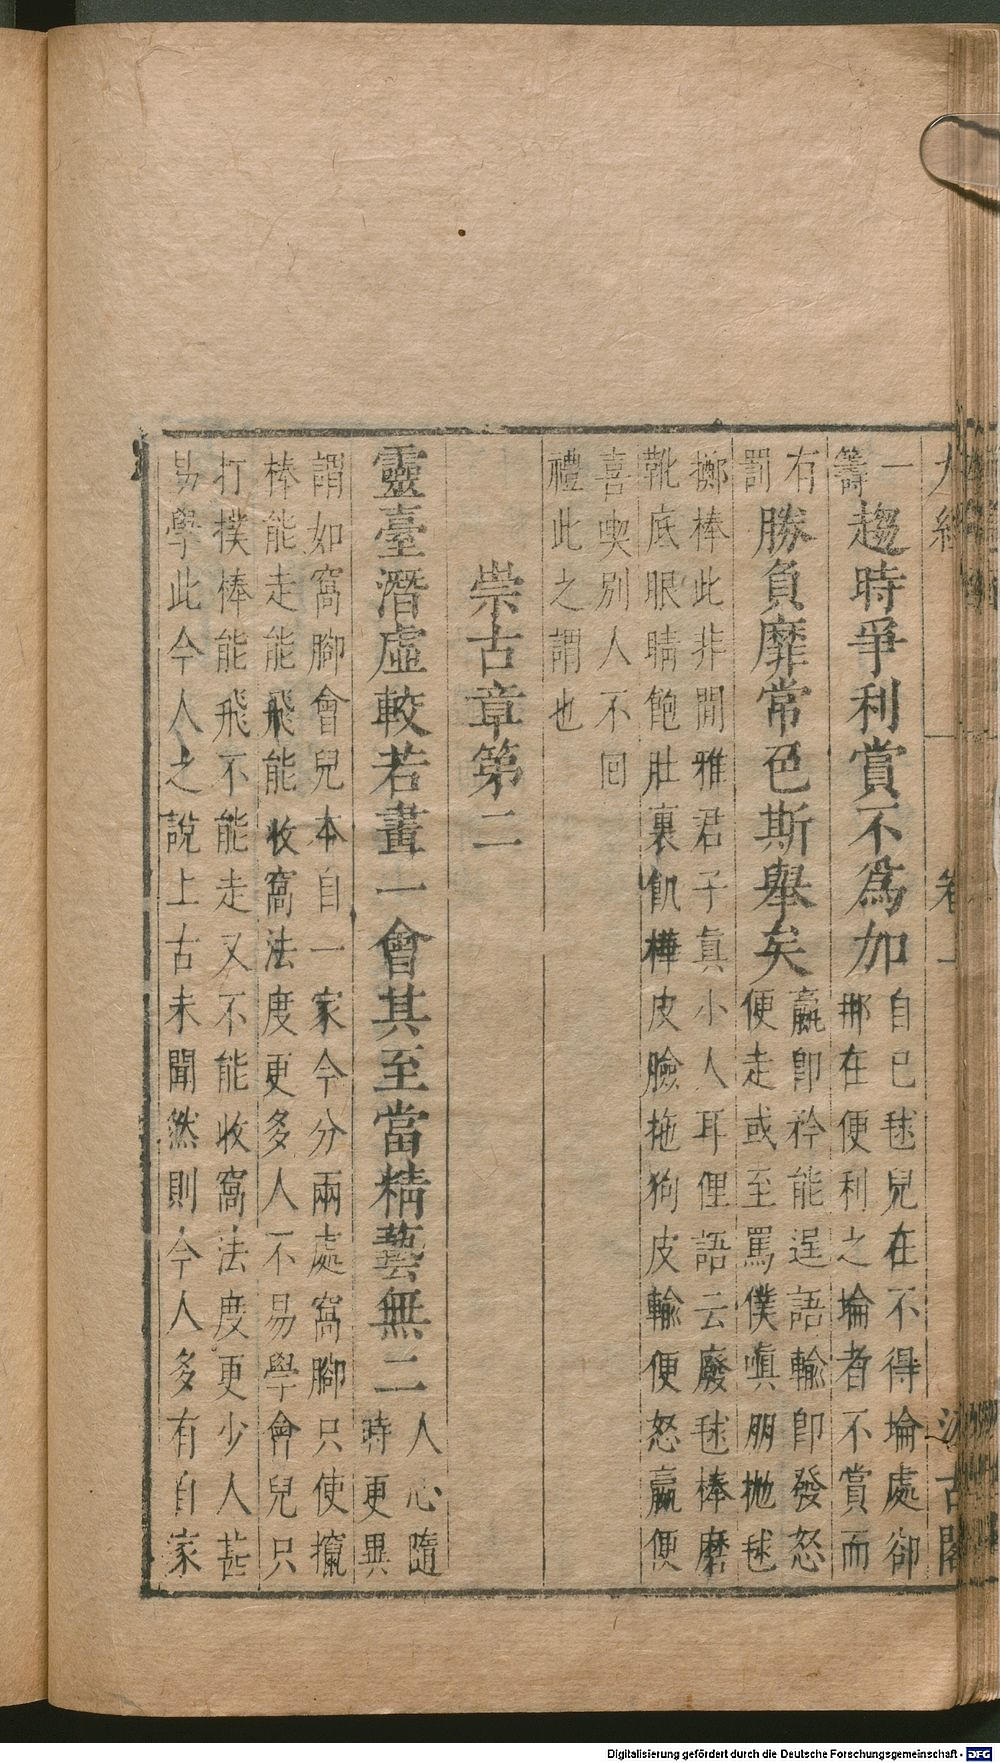 一
籌
趨時爭利賞不爲加
自已毬兒在不得埨處卻
挪在便利之埨者不賞而
有
罰
勝負靡常色斯舉矣
贏卽矜能逞語輸卽發怒
便走或至罵僕嗔朋拋毬
擲棒此非閒雅君子眞小人耳俚語云廢毬棒磨
靴底眼睛飽肚裏飢樺皮臉拖狗皮輸便怒贏便
喜喫別人不回
禮此之謂也
崇古章第二
靈臺潛虛較若畫一會其至當精藝無二
人心隨
時更異
謂如窩腳會兒本自一家今分兩處窩腳只使攛
棒能走能飛能收窩法度更多人不易學會兒只
打撲棒能飛不能走又不能收窩法度更少人甚
易學此今人之說上古未聞然則今人多有自家
古閣
Digitalisierung gefördert durch die Deutsche Forschungsgemeinschaft - DFG